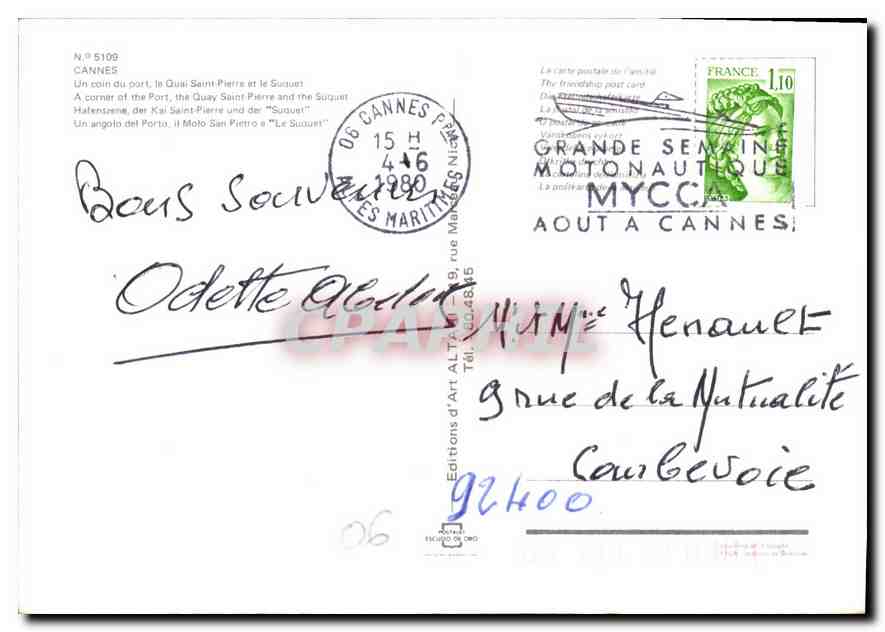 N.º 5109
CANNES
Un coin du port, le Quai Saint-Pierre et le Suquet
A corner of the Port, the Quay Saint-Pierre and the Suquet
Hafenszene, der Kai Saint-Pierre und der "Suquet"
Un angolo del Porto, il Molo San Pietro e "Le Suquet"
Bons souvenirs
Odette
06 CANNES PPAL
15 H
4-6
1980
ALPES MARITIMES
Editions d'Art ALTARI - 9, rue Marceau, Nice
Tél. 80.48.45
La carte postale de l'amitié
The friendship post card
FRANCE 1,10
GRANDE SEMAINE
MOTONAUTIQUE
MYCCA
AOUT A CANNES
M. & Mme Henault
9 rue de la Mutualité
Courbevoie
92400
06
POSTALES
ESCUDO DE ORO
CPAPHIL